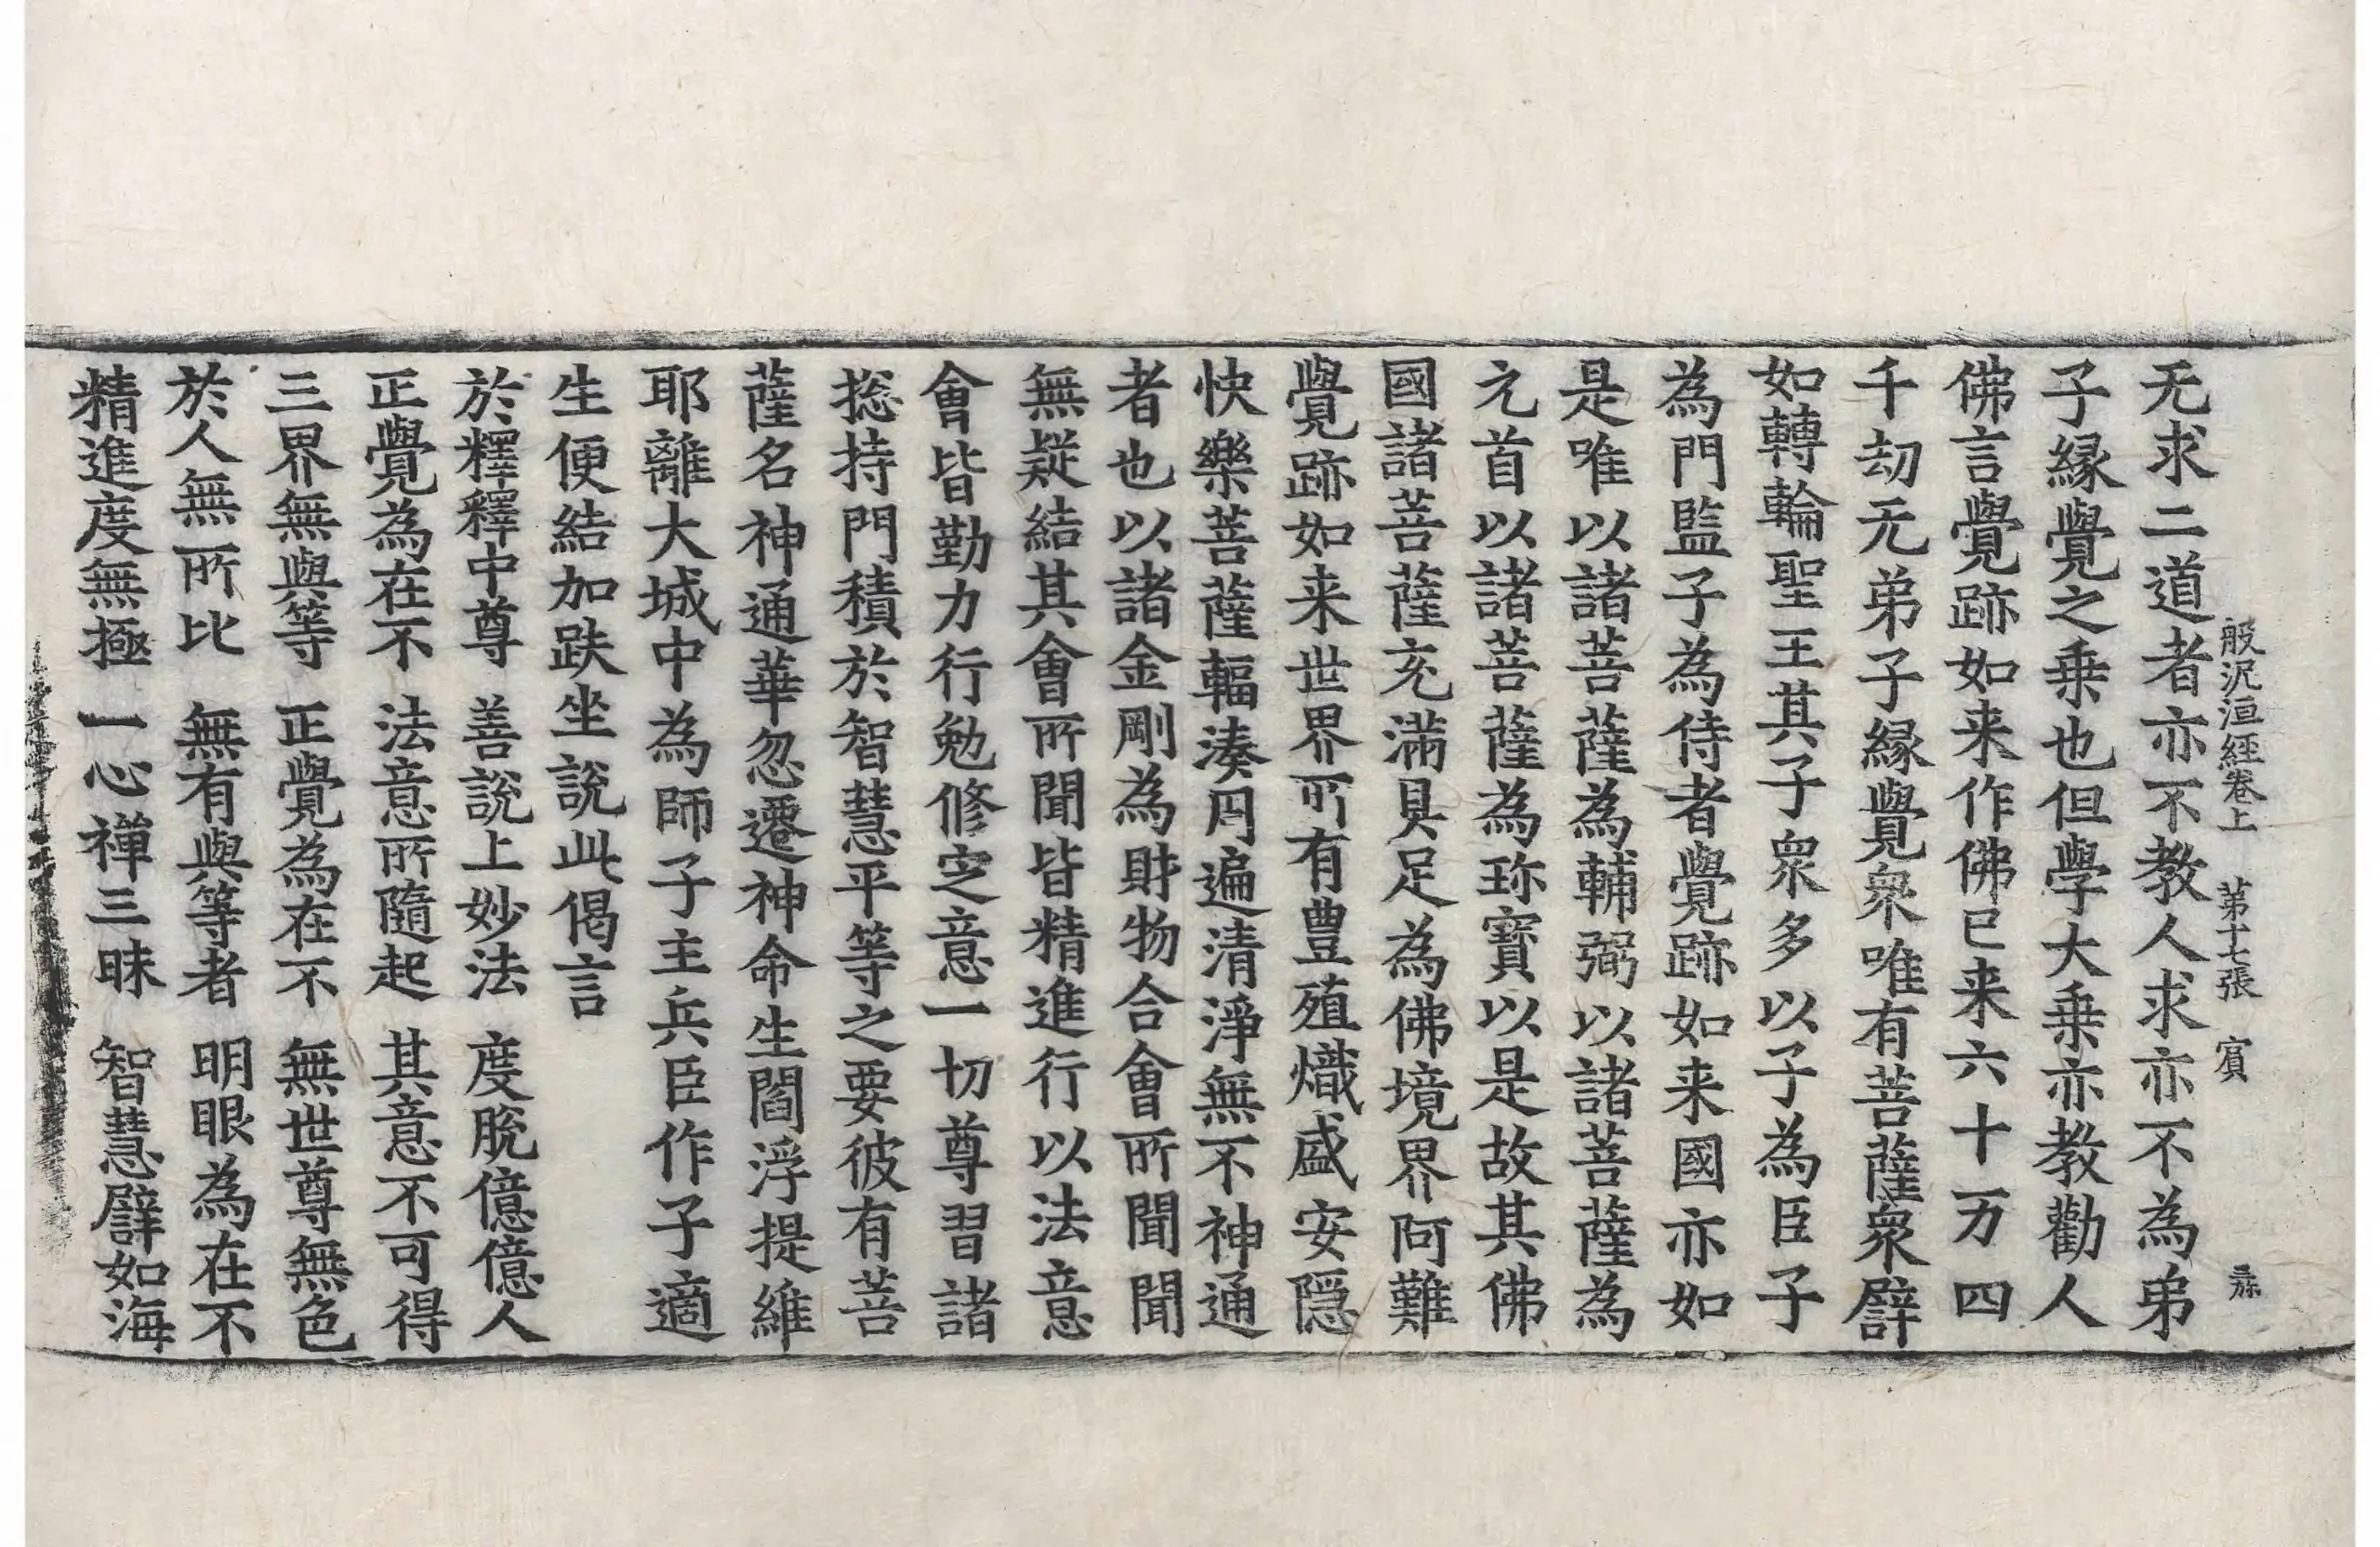 般泥洹經卷上　第十七張　賓
无求二道者亦不教人求亦不為弟
子緣覺之乘也但學大乘亦教勸人
佛言覺跡如来作佛已来六十万四
千劫无弟子緣覺衆唯有菩薩衆譬
如轉輪聖王其子衆多以子為臣子
為門監子為侍者覺跡如来國亦如
是唯以諸菩薩為輔弼以諸菩薩為
元首以諸菩薩為珎寶以是故其佛
國諸菩薩充滿具足為佛境界阿難
覺跡如来世界所有豊殖熾盛安隱
快樂菩薩輻湊周遍清淨無不神通
者也以諸金剛為財物合會所聞聞
無疑結其會所聞皆精進行以法意
會皆勤力行勉修定意一切尊習諸
捴持門積於智慧平等之要彼有菩
薩名神通華忽遷神命生閻浮提維
耶離大城中為師子主兵臣作子適
生便結加趺坐說此偈言
於釋釋中尊　善說上妙法　度脫億億人
正覺為在不　法意所隨起　其意不可得
三界無與等　正覺為在不　無世尊無色
於人無所比　無有與等者　明眼為在不
精進度無極　一心禪三昧　智慧譬如海